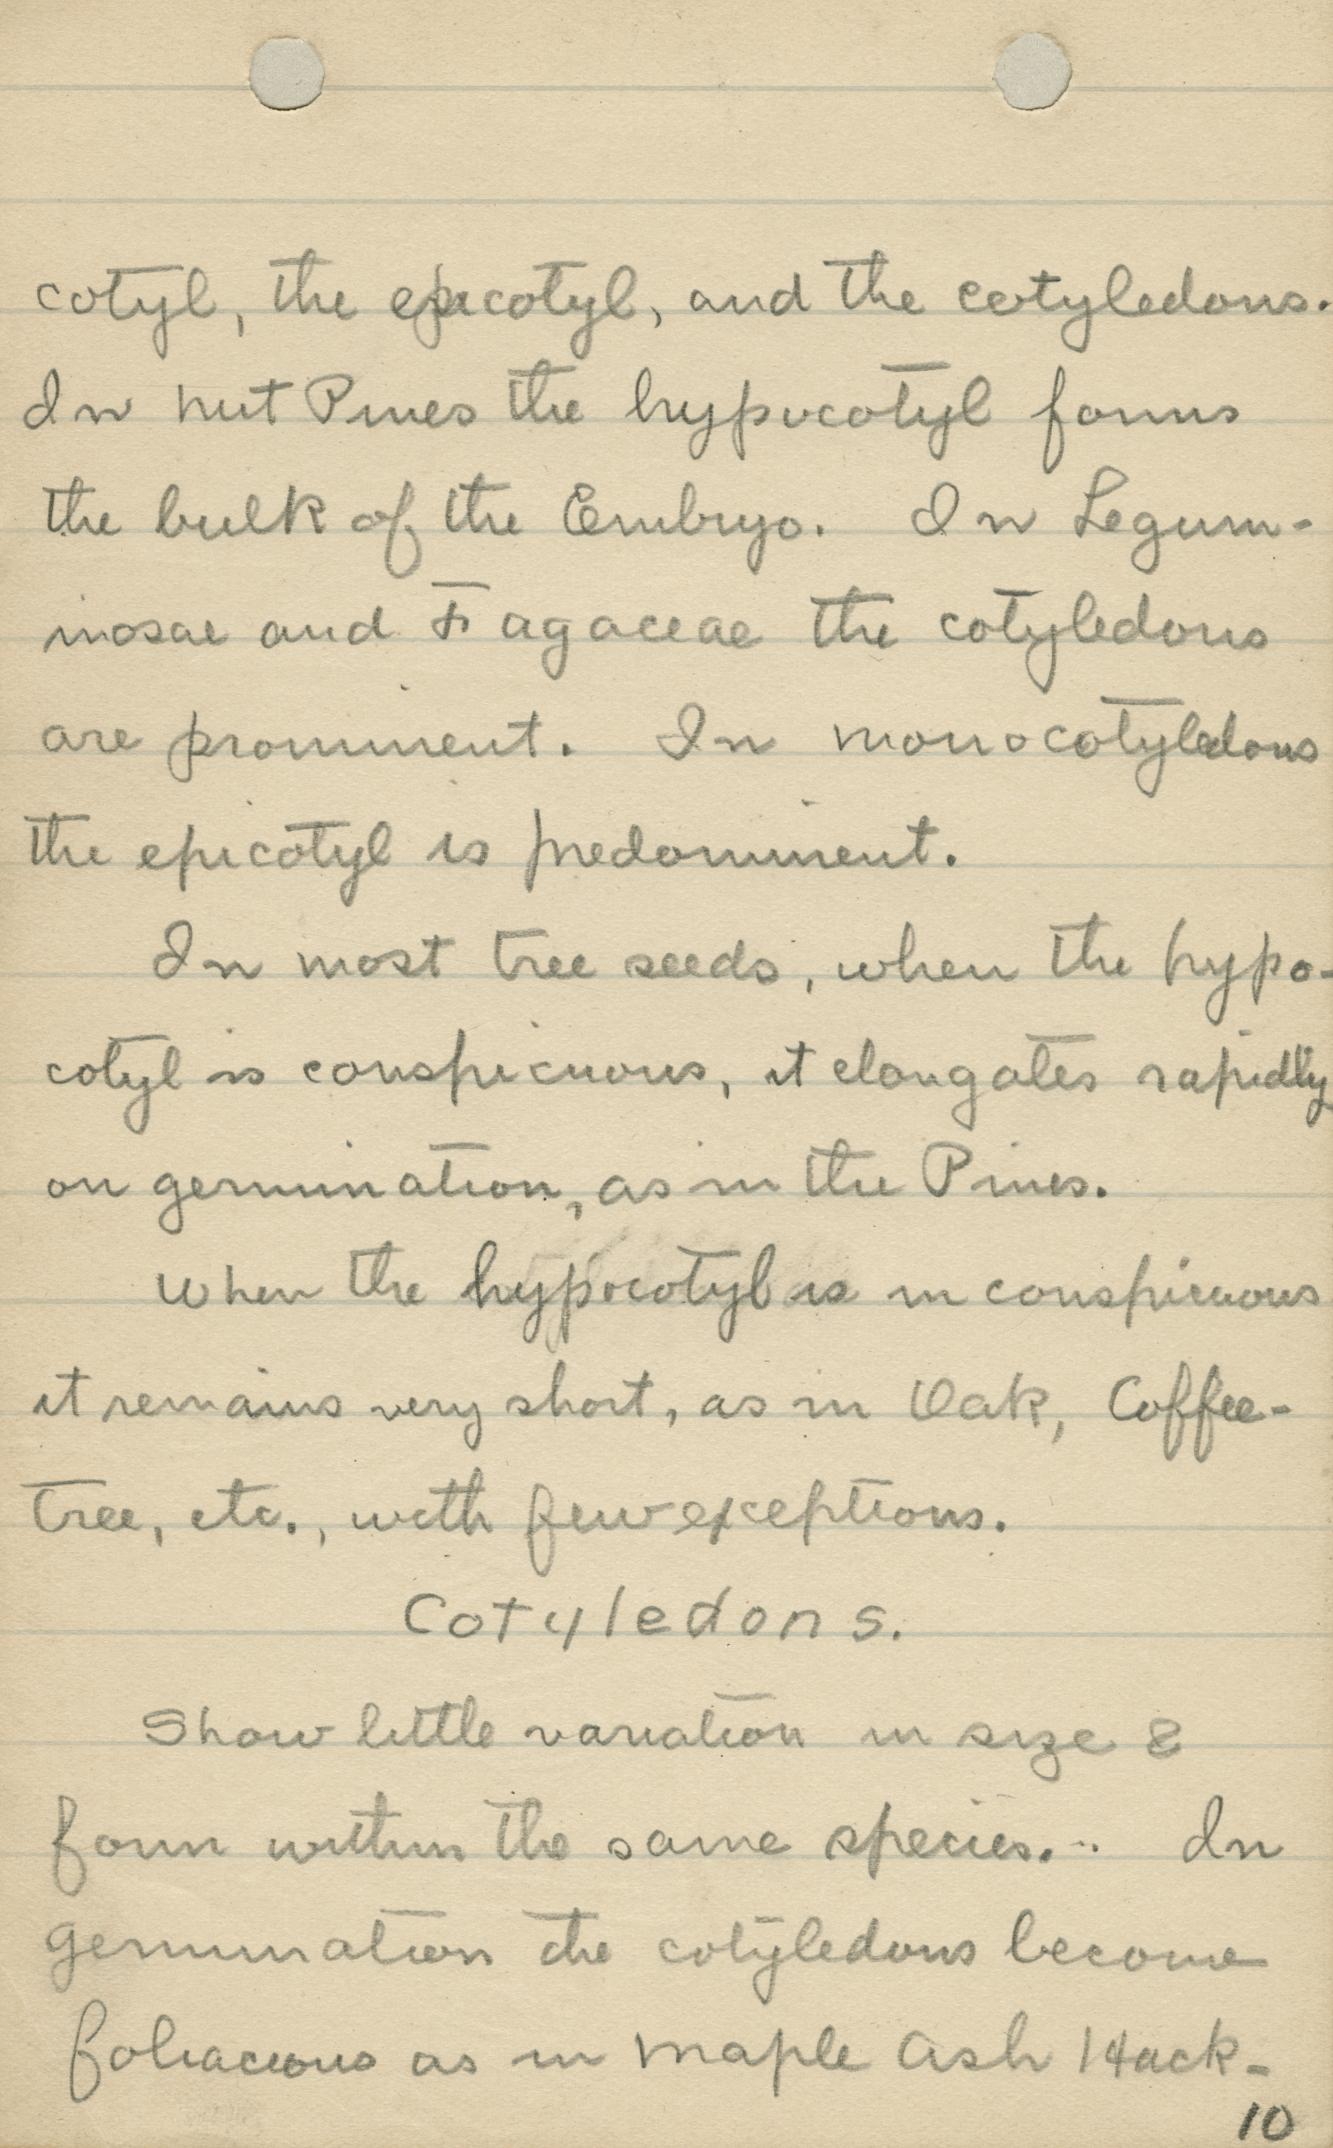 cotyl, the epicotyl, and the cotyledons.
In nut Pines the hypocotyl forms
the bulk of the Embryo. In Legum-
inosae and Fagaceae the cotyledons
are prominent. In monocotyledons
the epicotyl is predominent.
In most tree seeds, when the hypo-
cotyl is conspicuous, it elongates rapidly
on germination, as in the Pines.
When the hypocotyl is inconspicuous
it remains very short, as in Oak, Coffee-
tree, etc., with few exceptions.
Cotyledons.
Show little variation in size &
form within the same species. In
germination the cotyledons become
foliacious as in Maple Ash Hack-
10